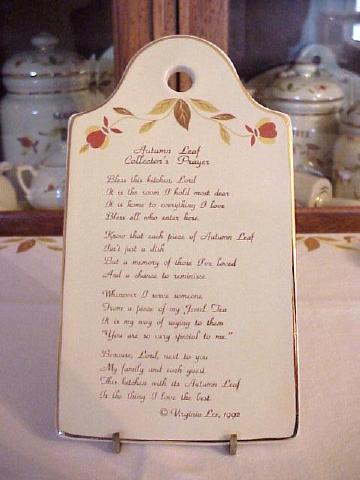 Autumn Leaf
Collector's Prayer
Bless this kitchen, Lord
It is the room I hold most dear
It is home to everything I love
Bless all who enter here.
Know that each piece of Autumn Leaf
Isn't just a dish
But a memory of those I've loved
And a chance to reminisce.
Whenever I serve someone
From a piece of my Jewel Tea
It is my way of saying to them
"You are so very special to me."
Because, Lord, next to you
My family and each guest
This kitchen with its Autumn Leaf
Is the thing I love the best.
© Virginia Lee, 1992